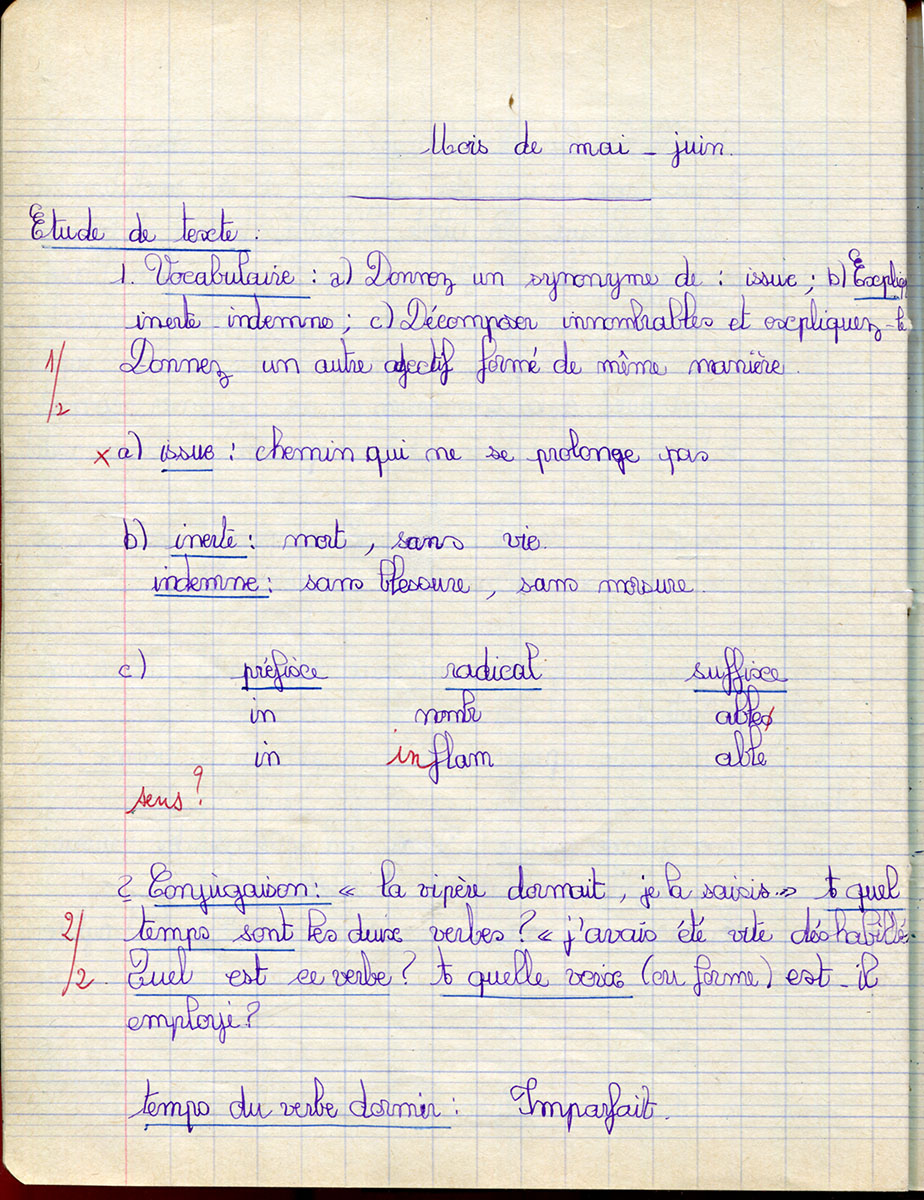 Mois de mai - juin.
Etude de texte :
1. Vocabulaire : a) Donnez un synonyme de : issue ; b) Expliq
inerte indemne ; c) Décomposer innombrables et expliquez-le
1/2 Donnez un autre adjectif formé de même manière.
x a) issue : chemin qui ne se prolonge pas
b) inerte : mort, sans vie.
indemne : sans blessure, sans morsure.
c) préfixe radical suffixe
in nombr ables
in inflam able
sens ?
2 Conjugaison : « la vipère dormait, je la saisis.» A quel
2/2 temps sont les deux verbes ? « j'avais été vite déshabillé.
Quel est ce verbe ? A quelle voix (ou forme) est-il
employé ?
temps du verbe dormir : Imparfait.